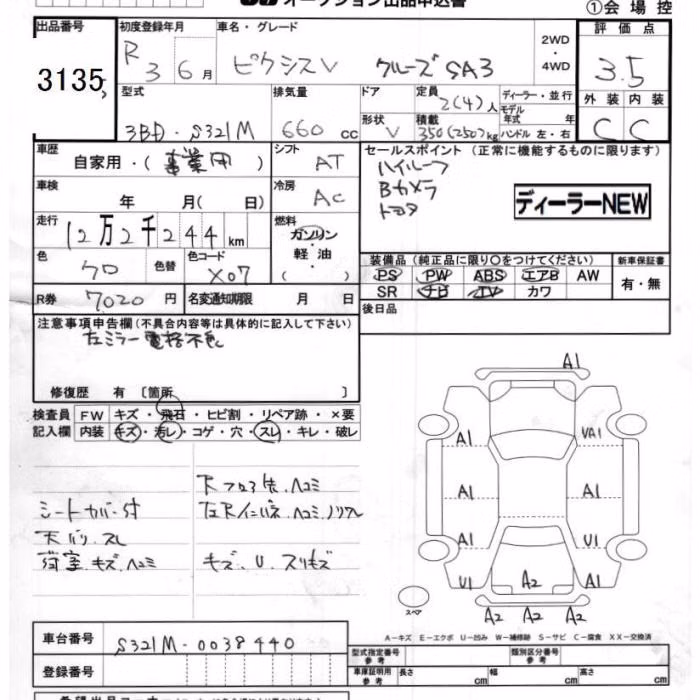 オークション出品申込書
①会場控
出品番号 初度登録年月 車名・グレード 2WD ・ 4WD 評価点
3135 R3 6月 ピクシスV クルーズSA3 3.5
型式 排気量 ドア 定員 2(4)人 ディーラー・並行 外装 内装
モデル年式 年
3BD・S321M 660cc 形状 V 積載 350(250)kg ハンドル 左・右 C C
車歴 自家用・(事業用) シフト AT セールスポイント (正常に機能するものに限ります)
ハイルーフ
車検 年 月( 日) 冷房 AC Bカメラ
トヨタ
ディーラーNEW
走行 12万2千244km 燃料 ガソリン・軽油・( )
色 クロ 色替 色コード X07 装備品(純正品に限り○をつけてください) 新車保証書
PS PW ABS エアB AW 有・無
SR ナビ TV カワ
R券 7020円 名変通知期限 月 日 後日品
注意事項申告欄(不具合内容等は具体的に記入して下さい)
左ミラー電格不良
修復歴 有〔箇所 〕
検査員 FW キズ・飛石・ヒビ割・リペア跡・×要
記入欄 内装 キズ・汚レ・コゲ・穴・スレ・キレ・破レ
シートカバー付
天バリ、スレ
荷室、キズ、ヘコミ
キズ、U、スリキズ
A1
A1 VA1
A1 A1
A1 U1
U1 A2 A1
スペア A2 A2 A2
A-キズ E-エクボ U-凹み W-補修跡 S-サビ C-腐食 XX-交換済
車台番号 S321M-0038440
登録番号
型式指定番号 参考 類別区分番号 参考
車庫証明用 参考 長さ cm 幅 cm 高さ cm